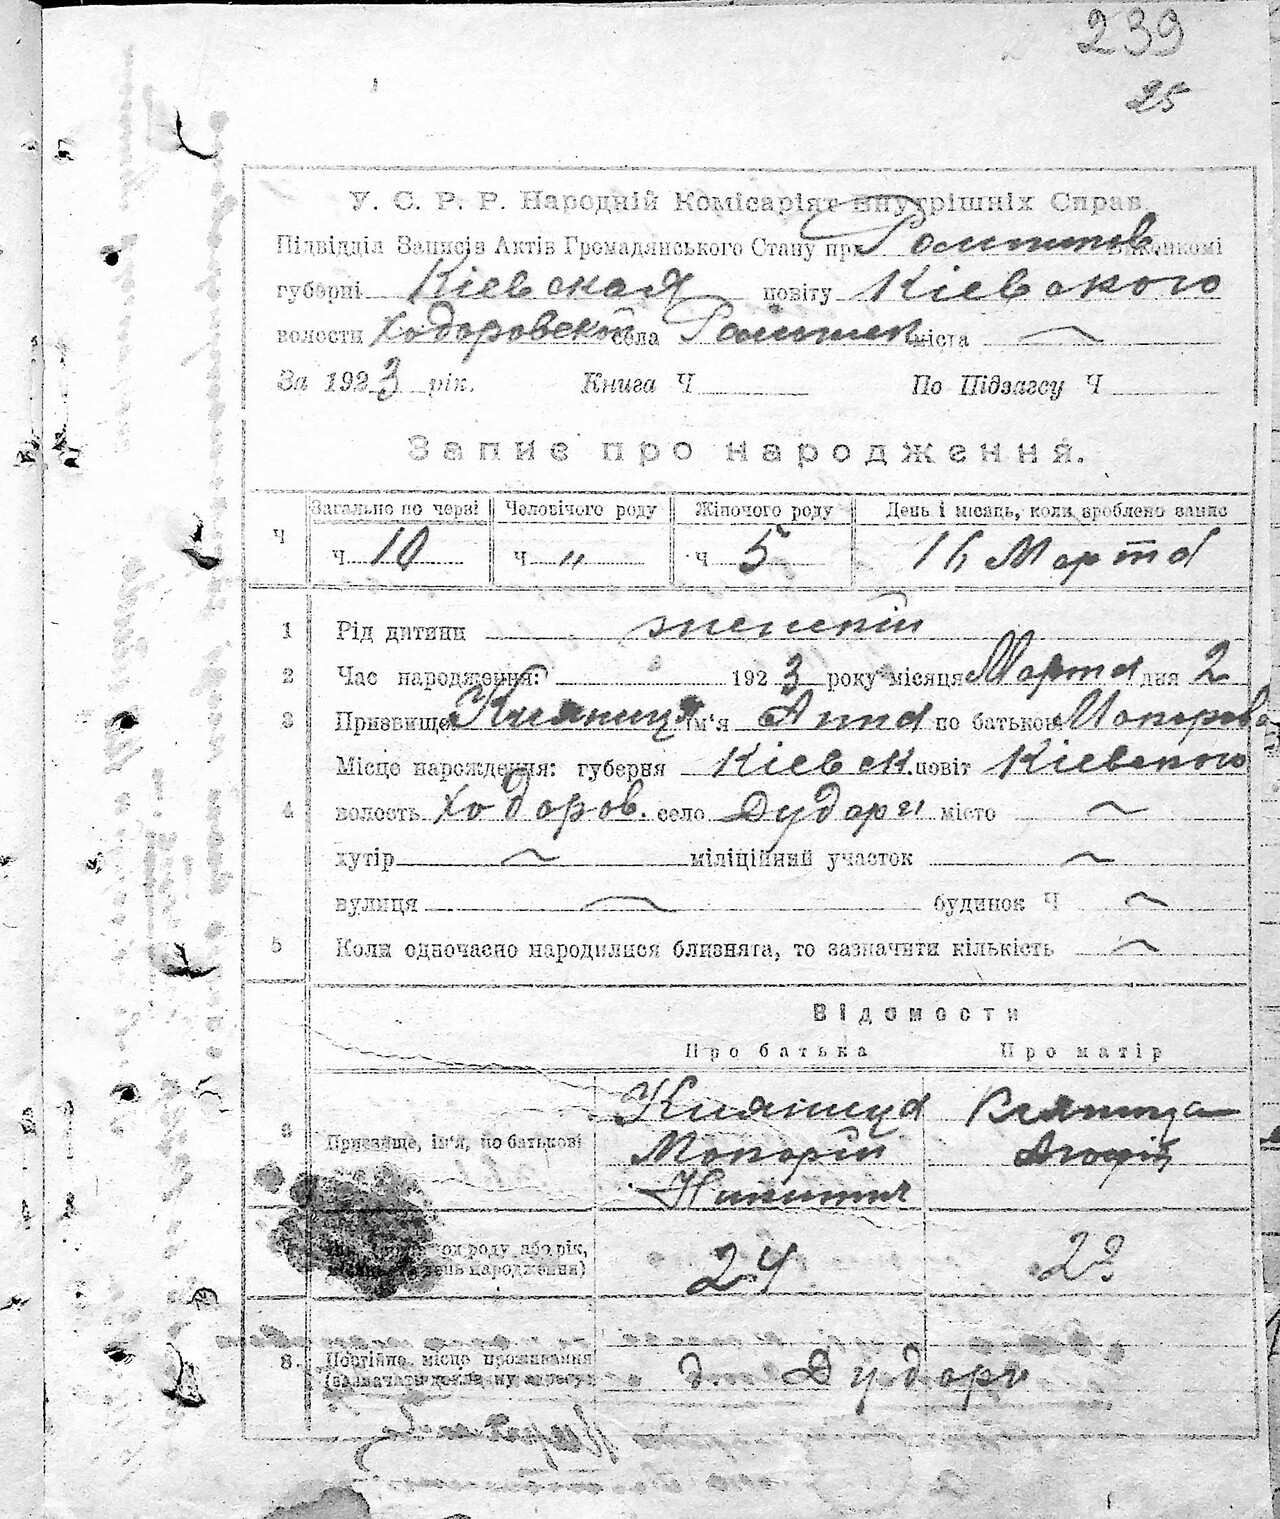 239
25
У. С. Р. Р. Народній Комісаріят Внутрішніх Справ.
Підвідділ Записів Актів Громадянського Стану при
губерні Кіевская повіту Кіевского
волости Ходоровской села міста ~
За 1923 рік. Книга Ч По Підзагсу Ч
Запис про народження.
Загально по черзі Человічого роду Жіночого роду День і місяць, коли зроблено запис
Ч Ч 10 Ч „ Ч 5 16 Марта
1 Рід дитини женский
2 Час народження: 1923 року місяця Марта дня 2
3 Призвище Княница ім'я Анна по батькові
Місце народження: губерня Кіевск. повіт Кіевского
4 волость Ходоров. село Дудари місто ~
хутір ~ міліційний участок ~
вулиця ~ будинок Ч ~
5 Коли одночасно народилися близнята, то зазначити кількість ~
Відомости
Про батька Про матір
6 Призвище, ім'я, по батькові Княница Княница
Никитич
роду або рік,
день народження) 24
8. Постійне місце проживання
(зазначати докладну адресу) д. Дудари